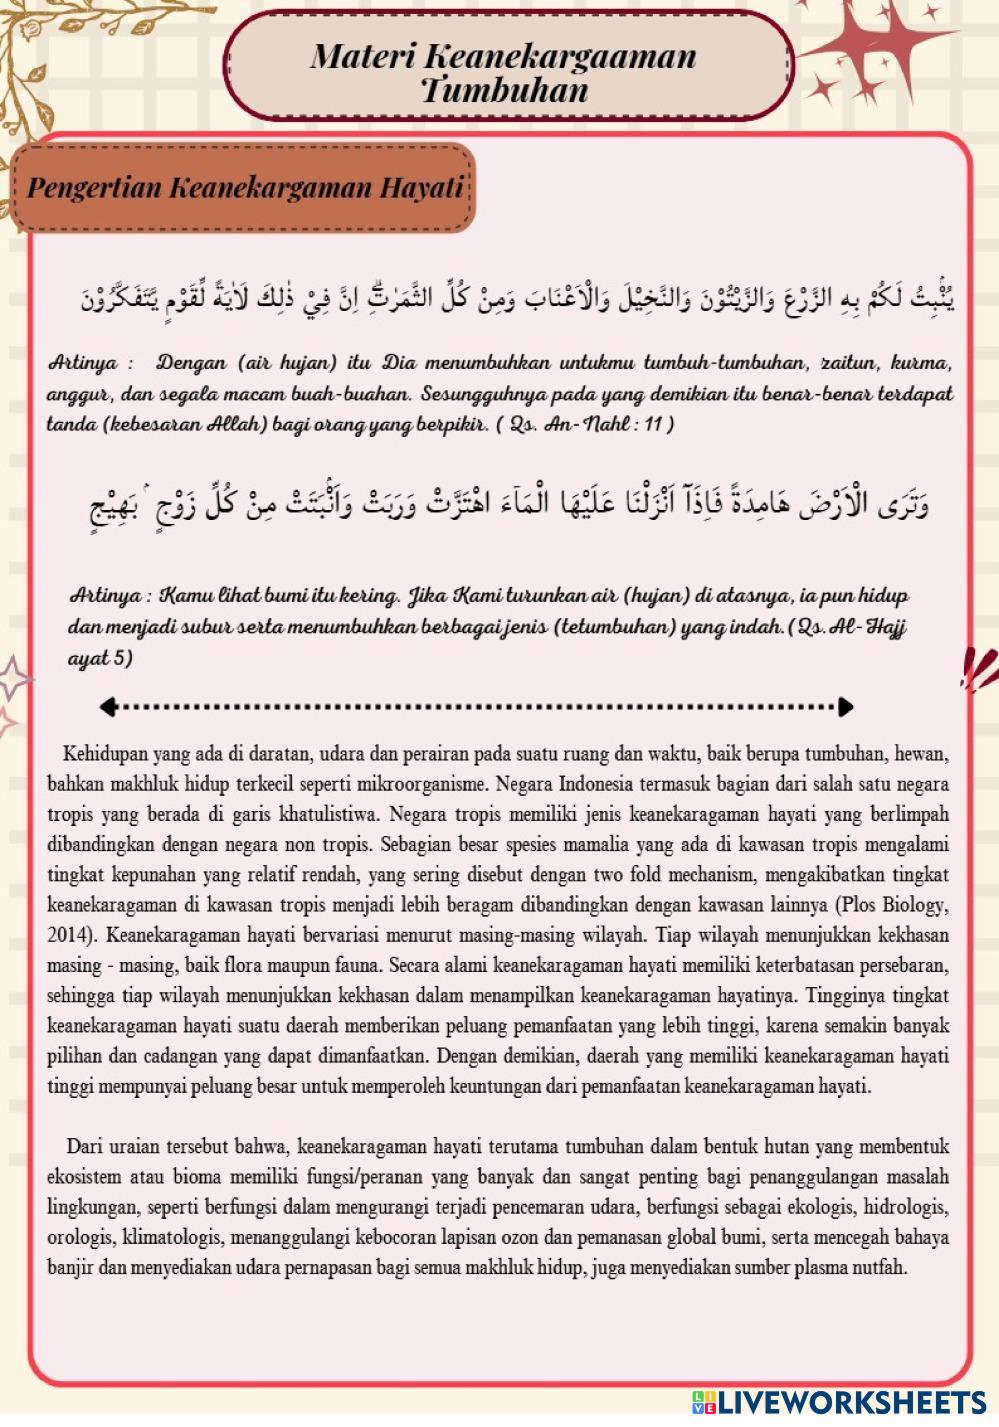 Materi Keanekargaaman
Tumbuhan
Pengertian Keanekargaman Hayati
يُنْۢبِتُ لَكُمْ بِهِ الزَّرْعَ وَالزَّيْتُوْنَ وَالنَّخِيْلَ وَالْاَعْنَابَ وَمِنْ كُلِّ الثَّمَرٰتِۗ اِنَّ فِيْ ذٰلِكَ لَاٰيَةً لِّقَوْمٍ يَّتَفَكَّرُوْنَ
Artinya : Dengan (air hujan) itu Dia menumbuhkan untukmu tumbuh-tumbuhan, zaitun, kurma,
anggur, dan segala macam buah-buahan. Sesungguhnya pada yang demikian itu benar-benar terdapat
tanda (kebesaran Allah) bagi orang yang berpikir. ( Qs. An- Nahl : 11 )
وَتَرَى الْاَرْضَ هَامِدَةً فَاِذَآ اَنْزَلْنَا عَلَيْهَا الْمَاۤءَ اهْتَزَّتْ وَرَبَتْ وَاَنْۢبَتَتْ مِنْ كُلِّ زَوْجٍۢ بَهِيْجٍ
Artinya : Kamu lihat bumi itu kering. Jika Kami turunkan air (hujan) di atasnya, ia pun hidup
dan menjadi subur serta menumbuhkan berbagai jenis (tetumbuhan) yang indah.( Qs. Al- Hajj
ayat 5)
Kehidupan yang ada di daratan, udara dan perairan pada suatu ruang dan waktu, baik berupa tumbuhan, hewan,
bahkan makhluk hidup terkecil seperti mikroorganisme. Negara Indonesia termasuk bagian dari salah satu negara
tropis yang berada di garis khatulistiwa. Negara tropis memiliki jenis keanekaragaman hayati yang berlimpah
dibandingkan dengan negara non tropis. Sebagian besar spesies mamalia yang ada di kawasan tropis mengalami
tingkat kepunahan yang relatif rendah, yang sering disebut dengan two fold mechanism, mengakibatkan tingkat
keanekaragaman di kawasan tropis menjadi lebih beragam dibandingkan dengan kawasan lainnya (Plos Biology,
2014). Keanekaragaman hayati bervariasi menurut masing-masing wilayah. Tiap wilayah menunjukkan kekhasan
masing - masing, baik flora maupun fauna. Secara alami keanekaragaman hayati memiliki keterbatasan persebaran,
sehingga tiap wilayah menunjukkan kekhasan dalam menampilkan keanekaragaman hayatinya. Tingginya tingkat
keanekaragaman hayati suatu daerah memberikan peluang pemanfaatan yang lebih tinggi, karena semakin banyak
pilihan dan cadangan yang dapat dimanfaatkan. Dengan demikian, daerah yang memiliki keanekaragaman hayati
tinggi mempunyai peluang besar untuk memperoleh keuntungan dari pemanfaatan keanekaragaman hayati.
Dari uraian tersebut bahwa, keanekaragaman hayati terutama tumbuhan dalam bentuk hutan yang membentuk
ekosistem atau bioma memiliki fungsi/peranan yang banyak dan sangat penting bagi penanggulangan masalah
lingkungan, seperti berfungsi dalam mengurangi terjadi pencemaran udara, berfungsi sebagai ekologis, hidrologis,
orologis, klimatologis, menanggulangi kebocoran lapisan ozon dan pemanasan global bumi, serta mencegah bahaya
banjir dan menyediakan udara pernapasan bagi semua makhluk hidup, juga menyediakan sumber plasma nutfah.
LIVE LIVEWORKSHEETS